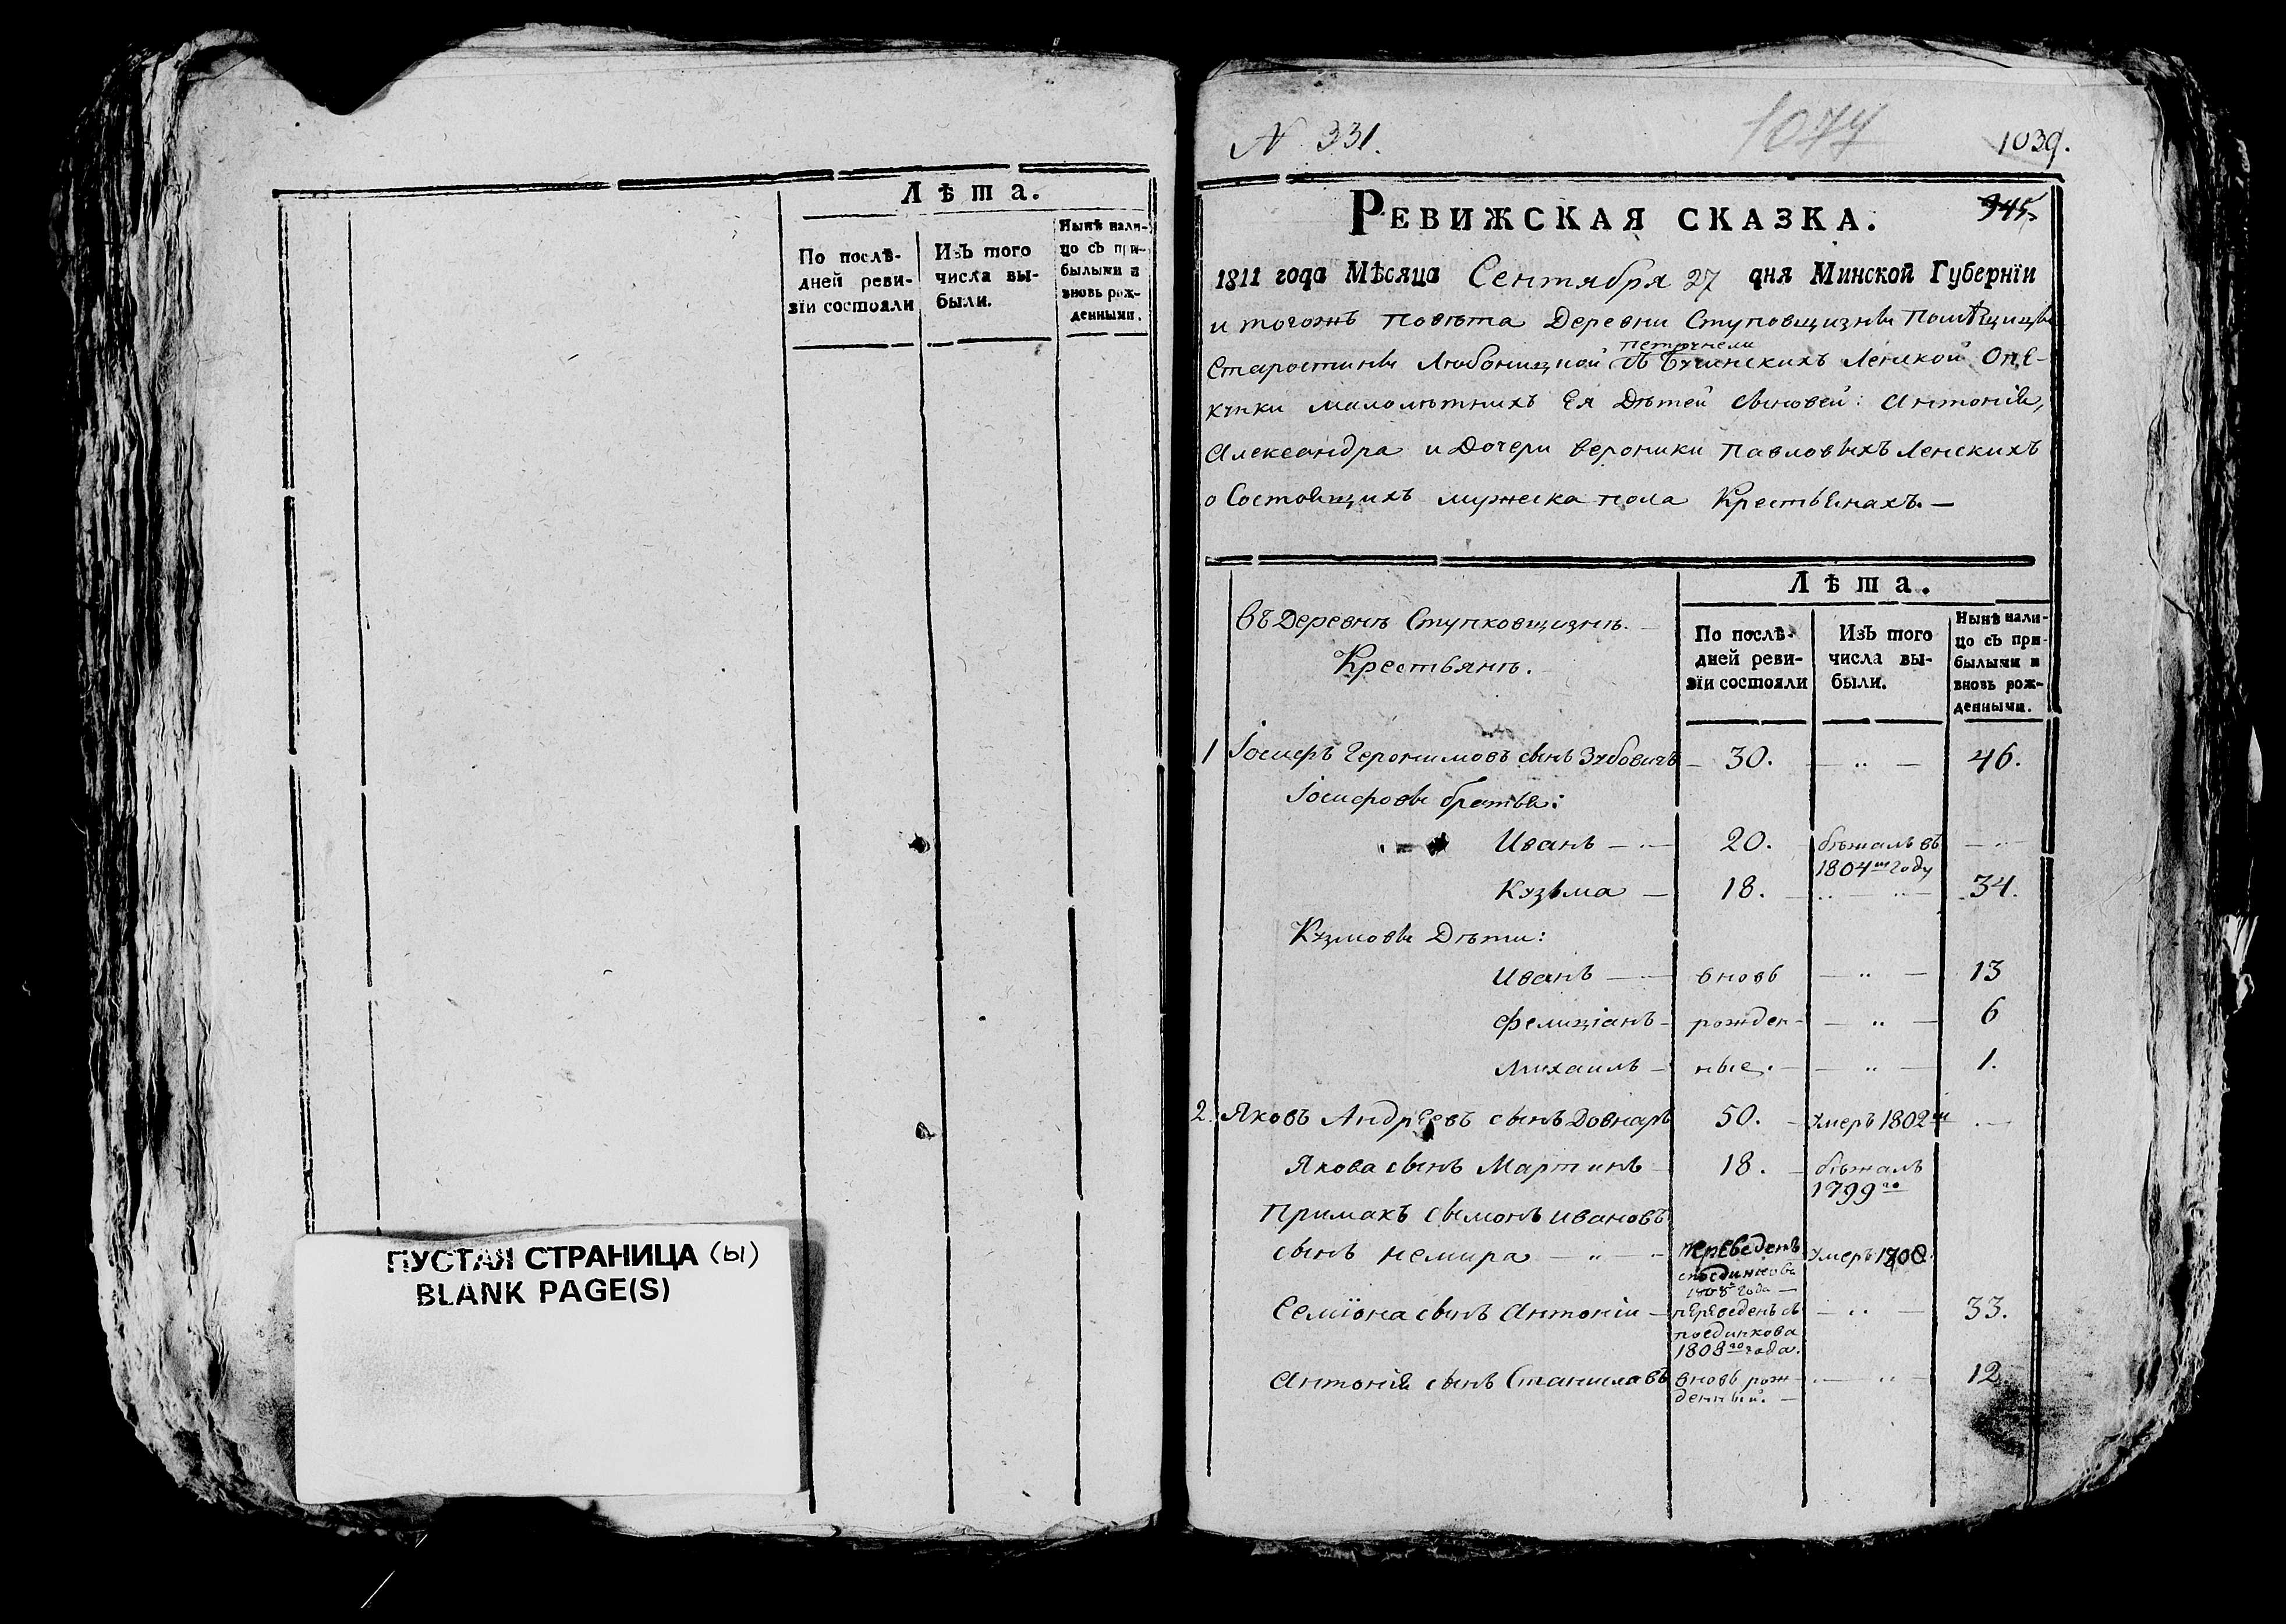 Лѣта.
По послѣ-
дней реви-
зїи состояли
Изъ того
числа вы-
были.
Нынѣ нали-
цо съ при-
былыми и
вновь рож-
денными.
ПУСТАЯ СТРАНИЦА (Ы)
BLANK PAGE(S)
N 331.
1074
1039.
945.
РЕВИЖСКАЯ СКАЗКА.
1811 года Мѣсяца Сентября 27 дня Минской Губернїи
и тогожъ повѣта Деревни Ступовщизны Помѣщицы
Старостины Любоницкой Ленской Опе-
кунки малолѣтнихъ Ея Дѣтей сыновей: Антонія,
Александра и Дочери Вероники Павловыхъ Ленскихъ
о Состоящихъ мужеска пола Крестьянахъ. —
въ Деревнѣ Ступковщизнѣ.
Крестьянъ.
Лѣта.
По послѣ-
дней реви-
зїи состояли
Изъ того
числа вы-
были.
Нынѣ нали-
цо съ при-
былыми и
вновь рож-
денными.
1 Іосифъ Геронимовъ сынъ Зубовичъ — 30. — „ — 46.
Іосифовы братья:
Иванъ — 20. бѣжалъ въ 1804м году — „ —
Кузьма — 18. — „ — 34.
Кузмовы Дѣти:
Иванъ — вновь — „ — 13
Фелиціанъ — рожден- — „ — 6
Михаилъ — ные. — „ — 1.
2. Яковъ Андреевъ сынъ Довнаръ 50. — умеръ 1802м . —
Якова сынъ Мартинъ — 18. — бѣжалъ 1799го
Примакъ Сымонъ Ивановъ
сынъ Немира — „ — переведенъ с поединкова 1808 года — умеръ 1808.
Семіона сынъ Антоніи — переведенъ съ поединкова 1808го года. — „ — 33.
Антонія сынъ Станиславъ вновь рож- — „ — 12
денный. —